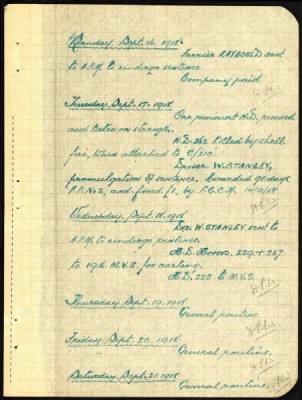 Monday, Sept. 16, 1918.
Farrier RAYBOULD sent
to A.P.M. to undergo sentence
Company paid
Tuesday, Sept. 17, 1918.
One remount H.D., received
and taken on strength.
H.D. 262 killed by shell
fire, when attached to C/210.
Driver W. STANLEY,
promulgation of sentence. Awarded 90 days
F.P. No 2, and fined £1, by F.G.C.M. 14/9/18
Wednesday, Sept. 18, 1918
Dvr. W. STANLEY sent to
A.P.M. to undergo sentence.
H.D. Horses. 229 & 237
to 19th M.V.S. for casting.
H.D. 228 to M.V.S.
Thursday, Sept. 19, 1918
General routine
Friday, Sept. 20, 1918
General routine.
Saturday, Sept. 21, 1918
General routine.